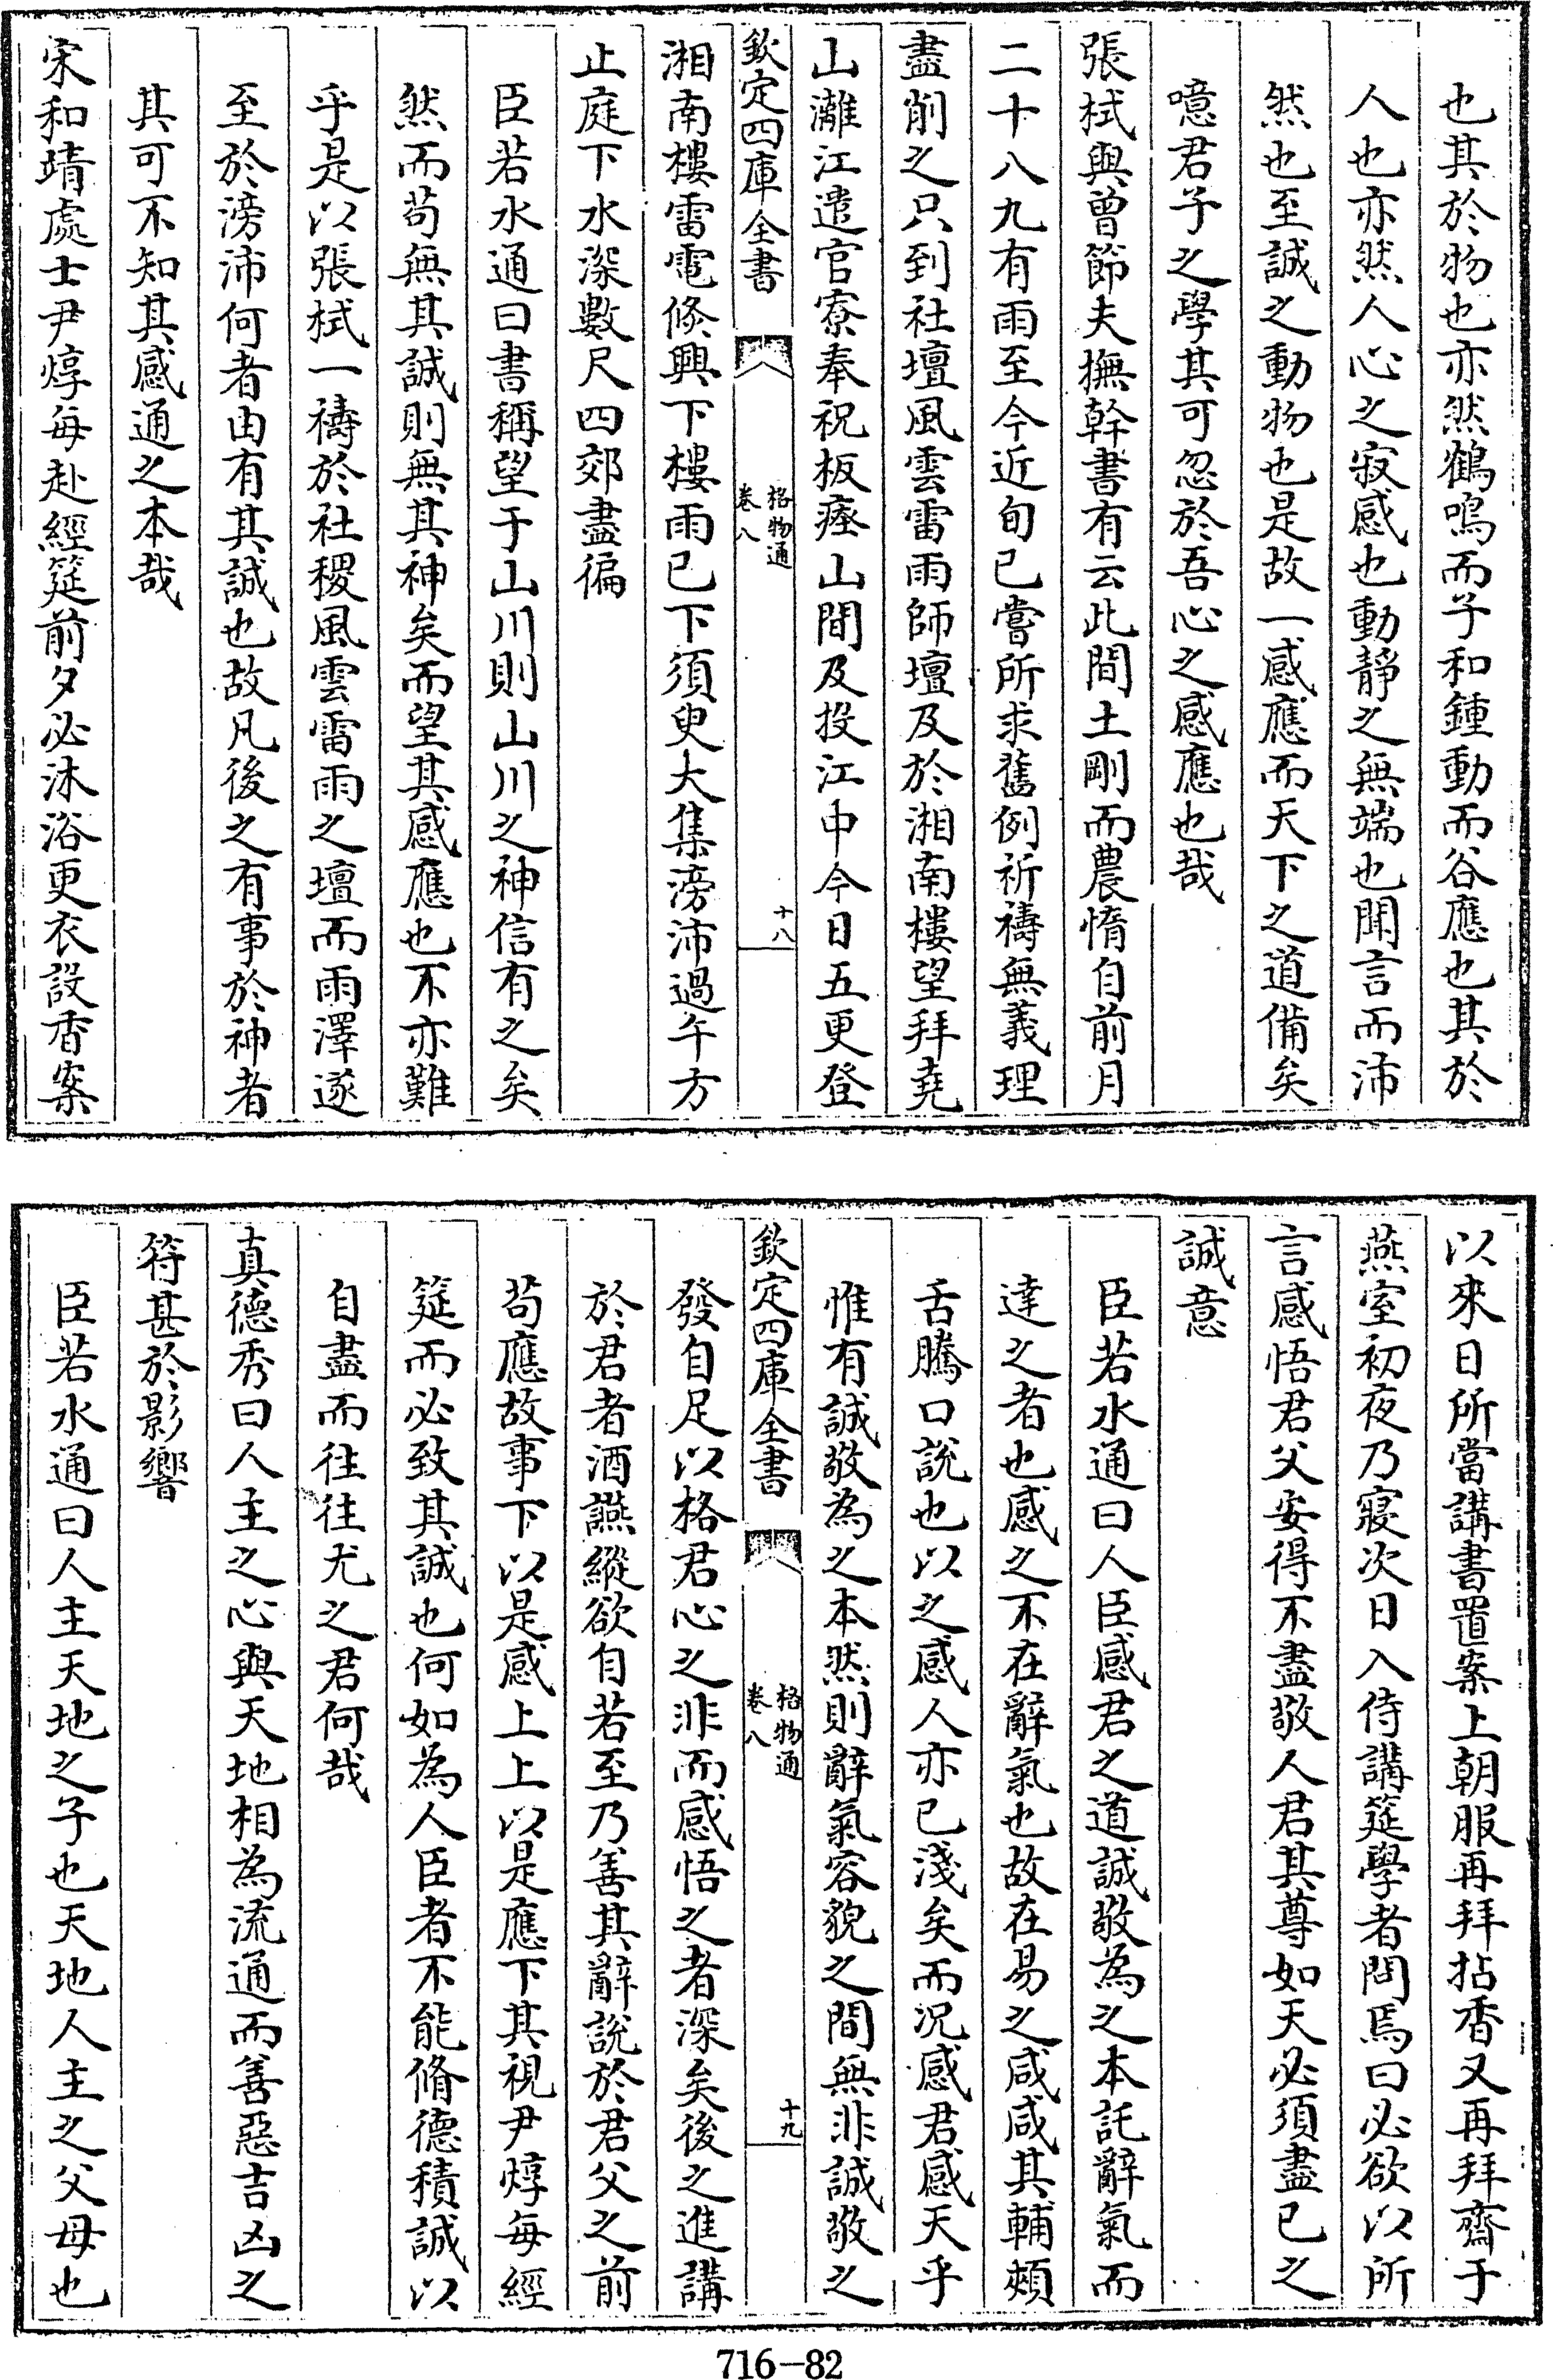 也其於物也亦然鶴鳴而子和鍾動而谷應也其於
人也亦然人心之寂感也動靜之無端也聞言而沛
然也至誠之動物也是故一感應而天下之道備矣
噫君子之學其可忽於吾心之感應也哉
張栻與曾節夫撫幹書有云此間土剛而農惰自前月
二十八九有雨至今近旬已嘗所求舊例祈禱無義理
盡削之只到社壇風雲雷雨師壇及於湘南樓望拜堯
山灕江遣官寮奉祝板瘞山間及投江中今日五更登
欽定四庫全書
格物通
卷八
十八
湘南樓雷電倐興下樓雨已下須臾大集滂沛過午方
止庭下水深數尺四郊盡徧
臣若水通曰書稱望于山川則山川之神信有之矣
然而茍無其誠則無其神矣而望其感應也不亦難
乎是以張栻一禱於社稷風雲雷雨之壇而雨澤遂
至於滂沛何者由有其誠也故凡後之有事於神者
其可不知其感通之本哉
宋和靖處士尹焞每赴經筵前夕必沐浴更衣設香案
以來日所當講書置案上朝服再拜拈香又再拜齋于
燕室初夜乃寢次日入侍講筵學者問焉曰必欲以所
言感悟君父安得不盡敬人君其尊如天必須盡已之
誠意
臣若水通曰人臣感君之道誠敬為之本託辭氣而
達之者也感之不在辭氣也故在易之咸咸其輔頰
舌騰口說也以之感人亦已淺矣而況感君感天乎
惟有誠敬為之本然則辭氣容貌之間無非誠敬之
欽定四庫全書
格物通
卷八
十九
發自足以格君心之非而感悟之者深矣後之進講
於君者酒讌縱欲自若至乃善其辭說於君父之前
茍應故事下以是感上上以是應下其視尹焞每經
筵而必致其誠也何如為人臣者不能脩德積誠以
自盡而往往尤之君何哉
真德秀曰人主之心與天地相為流通而善惡吉凶之
符甚於影響
臣若水通曰人主天地之子也天地人主之父母也
716-82